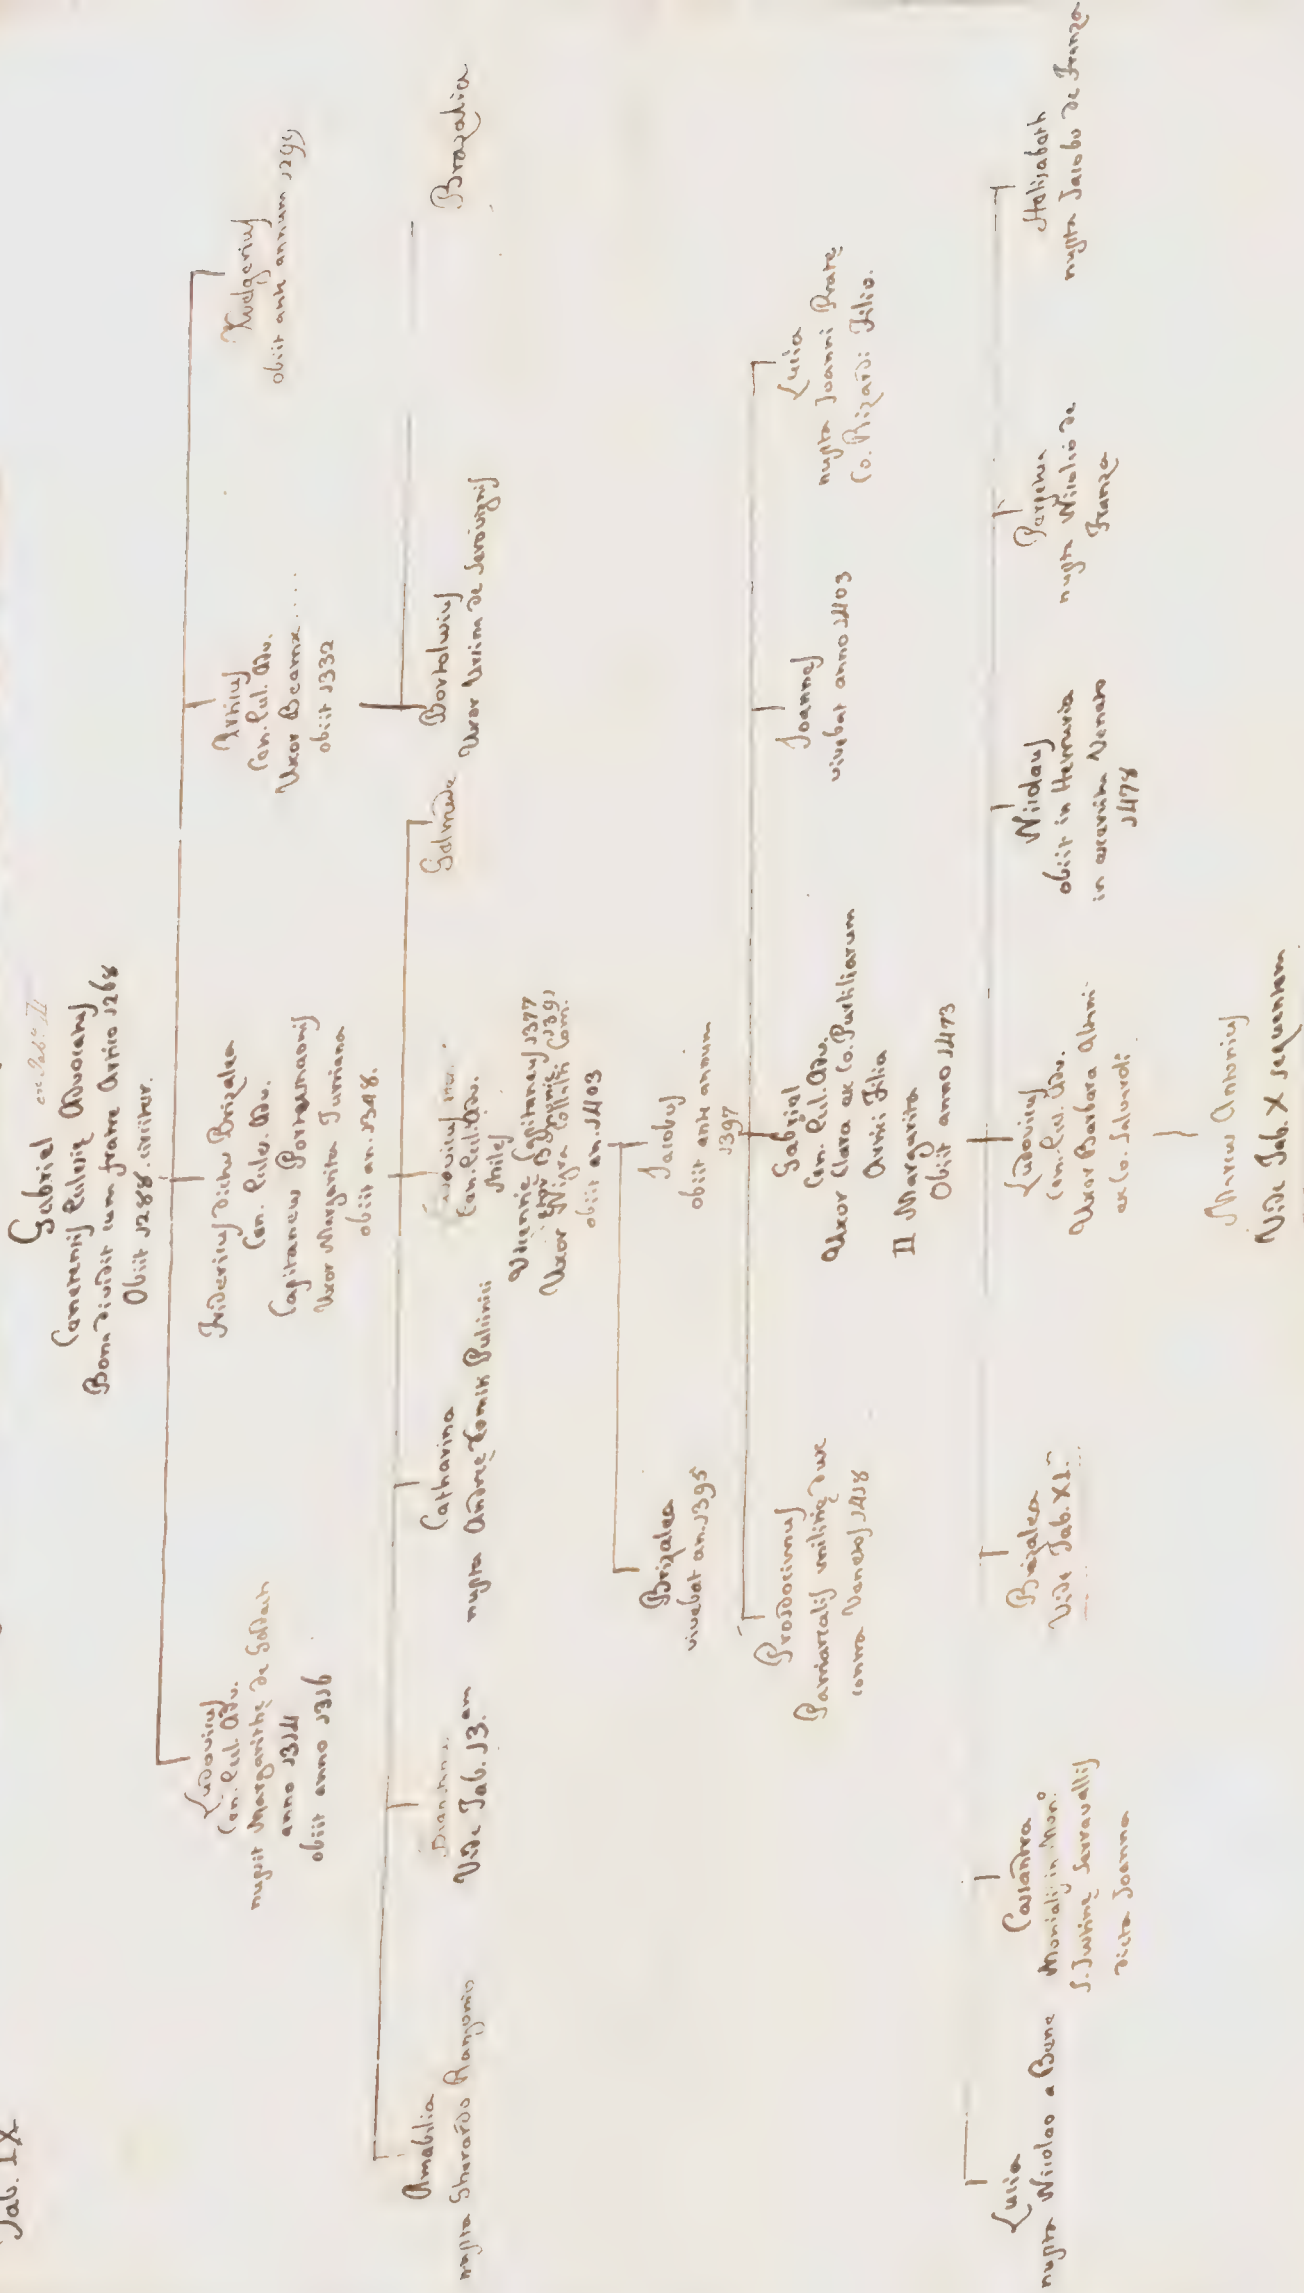 Tab. IX
ex Tab. II
Gabriel
Cenetensis Eclesię Advocatus
Bona dividit cum fratre Artico 1268
Obiit 1288. circiter.
Ludovicus
Cen. Ecl. Adv.
nupsit Margarithę de Goldach
anno 1314
obiit anno 1316
Fridericus dictus Brizalea
Cen. Ecles. Adv.
Capitaneus Portusnaonis
Uxor Margarita Turriana
obiit an. 1348.
Articus
Cen. Ecl. Adv.
Uxor Beatrix ....
obiit 1332
Rudgerius
obiit ante annum 1299
Amabilia
nupta Gherardo Rangonio
Vide Tab. 13.am
Catharina
nupta Andreę Comiti Pulinici
Ludovicus
Cen. Ecl. Adv.
Miles
Vicentię Capitaneus 1377
1391
Uxor Nigra Collalti Com.
obiit an. 1403
Galmede
Bortolucius
Uxor Ursina de Savorgnis
Brazalia
Brizalea
vivebat an. 1395
Jacobus
obiit ante annum
1397
Prosdocimus
Patriarcalis militię dux
contra Venetos 1418
Gabriel
Cen. Ecl. Adv.
Uxor Clara ex Co. Purliliarum
Artici Filia
II Margarita
Obiit anno 1473
Joannes
vivebat anno 1403
Lucia
nupta Joanni Pratę
Co. Rizardi Filio.
Lucia
nupta Nicolao a Bune
Cassandra
Monialis in Mon.o
S. Justinę Serravallis
dicta Joanna
Brizalea
Vide Tab. XI.
Ludovicus
Cen. Ecl. Adv.
Uxor Barbara
ex Co. Salvaroli
Nicolaus
obiit in Hetruria
in exercitu Veneto
1478
Perpetua
nupta Nicolao de
Franza
Helisabeth
nupta Jacobo de Franza
Marcus Antonius
Vide Tab. X sequentem